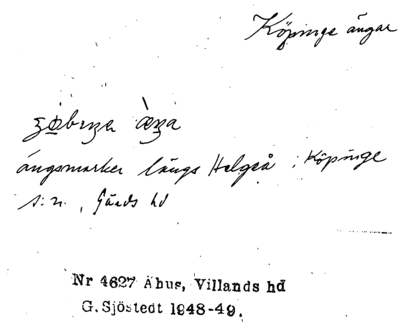 Köpinge ängar
ängsmarker längs Helgeå i Köpinge
s:n, Gärds hd
Nr 4627 Åhus, Villands hd
G. Sjöstedt 1948-49.